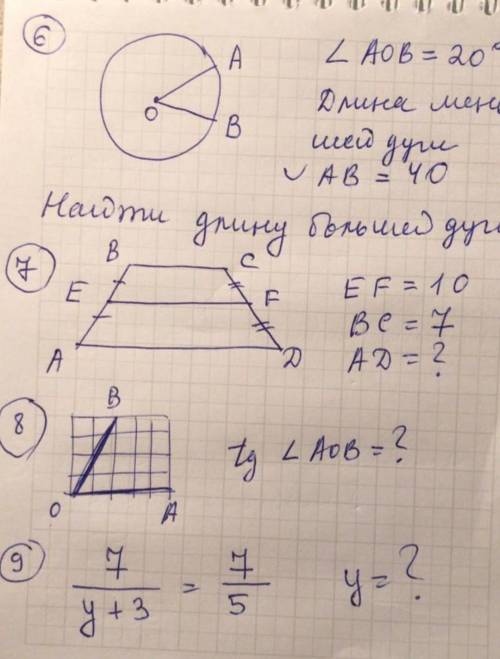 6
A
O
B
∠ AOB = 20°
Длина мень
шей дуги
◡ AB = 40
Найти длину большей дуги
7
B
C
E
F
A
D
EF = 10
BC = 7
AD = ?
8
B
O
A
tg ∠ AOB = ?
9
7
y + 3
=
7
5
y = ?